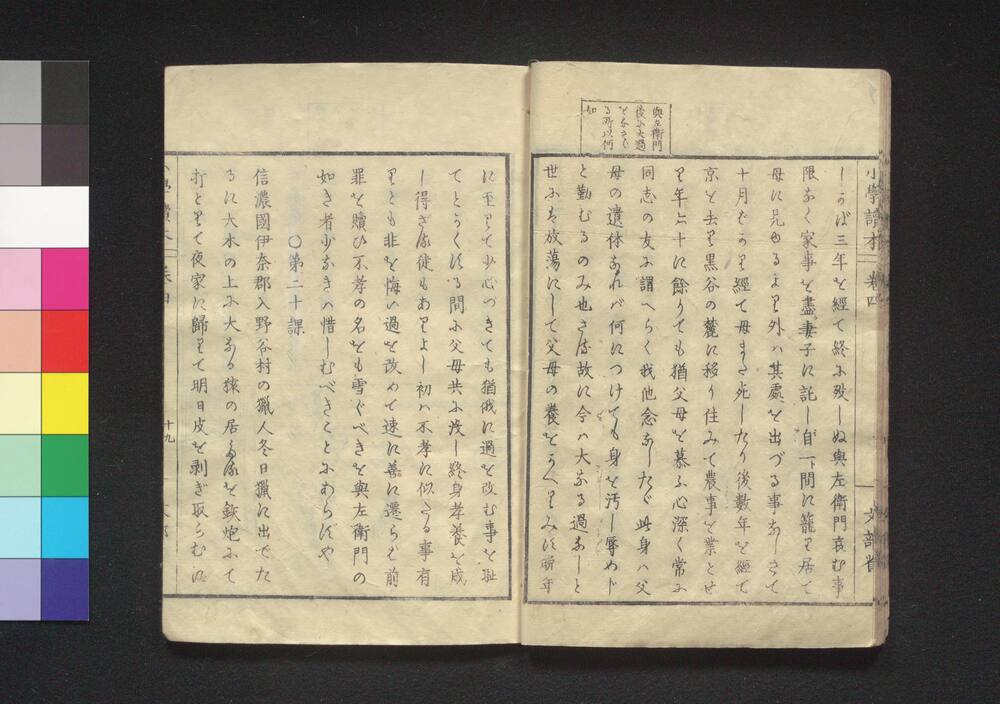 小學讀本 卷四 文部省
與左衛門
後に大過
をなさゞ
る所以何
如
しかば三年を經て終に歿しぬ與左衛門哀む事
限なく家事を盡妻子に託し自一間に籠り居て
母に見ゆるより外ハ其處を出づる事なしさて
十月ばかり經て母また死したり後數年を經て
京を去り黒谷の麓に移り住みて農事を業とせ
り年六十に餘りても猶父母を慕ふ心深く常に
同志の友に謂へらく我他念なしたゞ此身ハ父
母の遺体なれバ何につけても身を汚し辱めじ
と勤むるのみ也さる故に今ハ大なる過なしと
世には放蕩にして父母の養をかへりみず晩年
に至りて少心づきても猶俄に過を改む事を耻
てとかくする間に父母共に沒し終身孝養を成
し得ざる徒もありよし初ハ不孝に似たる事有
りとも非を悔い過を改めて速に善に還らば前
罪を贖ひ不孝の名をも雪ぐべきを與左衛門の
如き者少なきハ惜しむべきことにあらずや
○第二十課
信濃國伊奈郡入野谷村の獵人冬日獵に出でた
るに大木の上に大なる猿の居るを鉄炮にて
打とりて夜家に歸りて明日皮を剥ぎ取らむに
十九